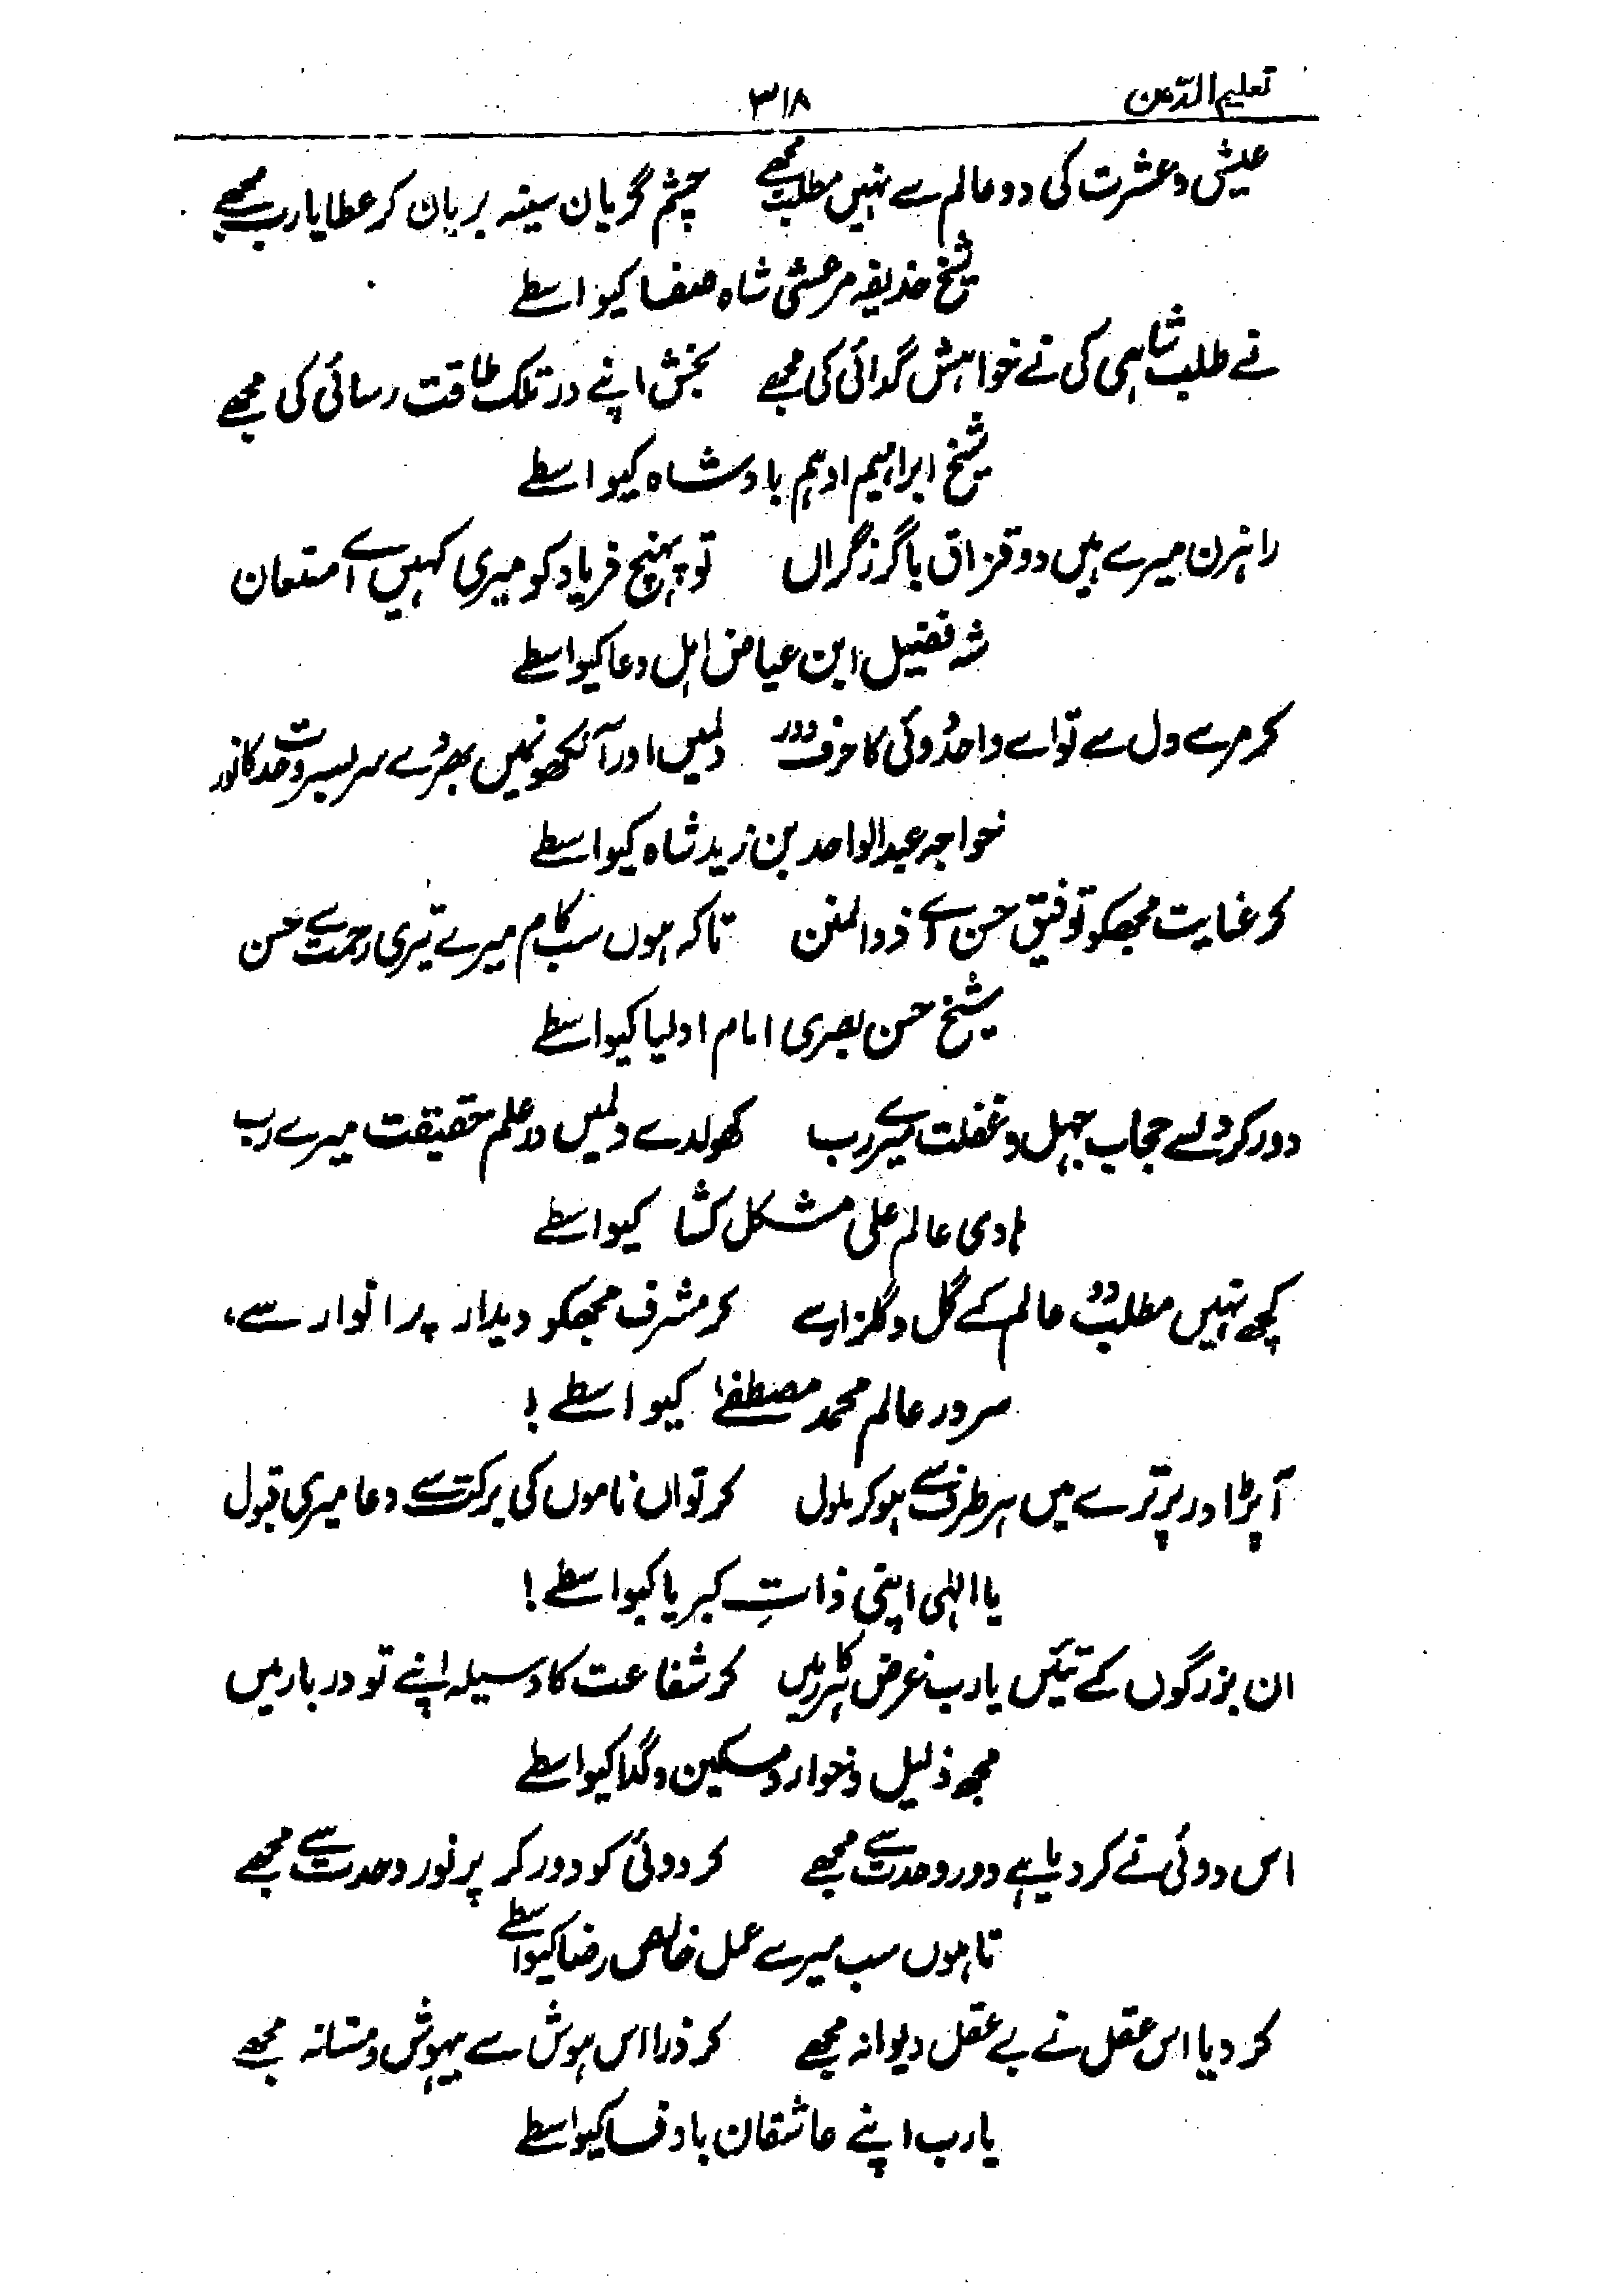 تعلیم الدین ۳۱۸
عیش و عشرت کی دو عالم سے نہیں مطلب مجھے چشم گریان سینہ بریان کر عطا یارب مجھے
شیخ حذیفہ مرعشی شاہ صفا کیواسطے
نے طلب شاہی کی نے خواہش گدائی کی مجھے بخش اپنے در تلک طاقت رسائی کی مجھے
شیخ ابراہیم ادہم بادشاہ کیواسطے
راہزن میرے ہیں دو قزاق با گرز گراں تو پہنچ فریاد کو میری کہیں اے مستعان
شہ فضیل ابن عیاض اہل دعا کیواسطے
کر مرے دل سے تو اے واحد دُوئی کا حرف دور دلمیں اور آنکھونمیں بھردے سربسر وحدت کا نور
خواجہ عبدالواحد بن زید شاہ کیواسطے
کر عنایت مجھکو توفیق حسن اے ذوالمنن تاکہ ہوں سب کام میرے تیری رحمت سے حسن
شیخ حسن بصری امام اولیا کیواسطے
دور کر دل سے حجاب جہل و غفلت میرے رب کھولدے دلمیں در علم حقیقت میرے رب
ہادی عالم علی مشکل کشا کیواسطے
کچھ نہیں مطلب دو عالم کے گل و گلزار سے کر مشرف مجھکو دیدار پر انوار سے،
سرور عالم محمد مصطفےٰ کیواسطے!
آپڑا در پر ترے میں ہر طرف سے ہوکر ملول کر تو ان ناموں کی برکت سے دعا میری قبول
یا الٰہی اپنی ذاتِ کبریا کیواسطے!
ان بزرگوں کے تئیں یارب غرض ہر کار میں کر شفاعت کا وسیلہ اپنے تو دربار میں
مجھ ذلیل و خوار و مسکین و گدا کیواسطے
اس دوئی نے کردیا ہے دور وحدت سے مجھے کر دوئی کو دور کر پر نور وحدت سے مجھے
تاہوں سب میرے عمل خالص رضا کیواسطے
کر دیا اس عقل نے بے عقل دیوانہ مجھے کر ذرا اس ہوش سے بیہوش و مستانہ مجھے
یارب اپنے عاشقان باوفا کیواسطے